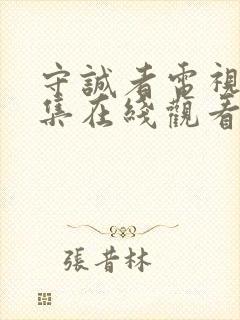 守誠者電視
集在綫觀看
張昔林